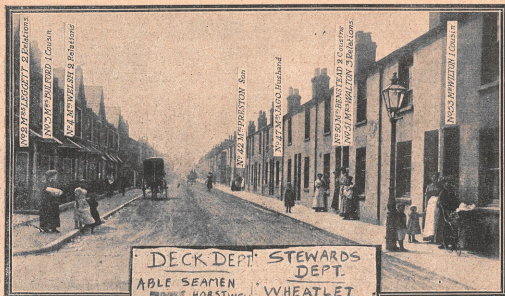 No 2 Mrs LEGGETT 2 Relations.
No 3 Mrs BULFORD 1 Cousin
No 4 Mrs WELSH 2 Relations
No 42 Mrs PRESTON Son
No 47 Mrs JAGO, Husband
No 50 Mrs BENSTEAD 2 Cousins
No 51 Mrs WALTON 3 Relations
No 53 Mrs WILTON 1 Cousin
DECK DEPT.
ABLE SEAMEN
STEWARDS
DEPT.
WHEATLET